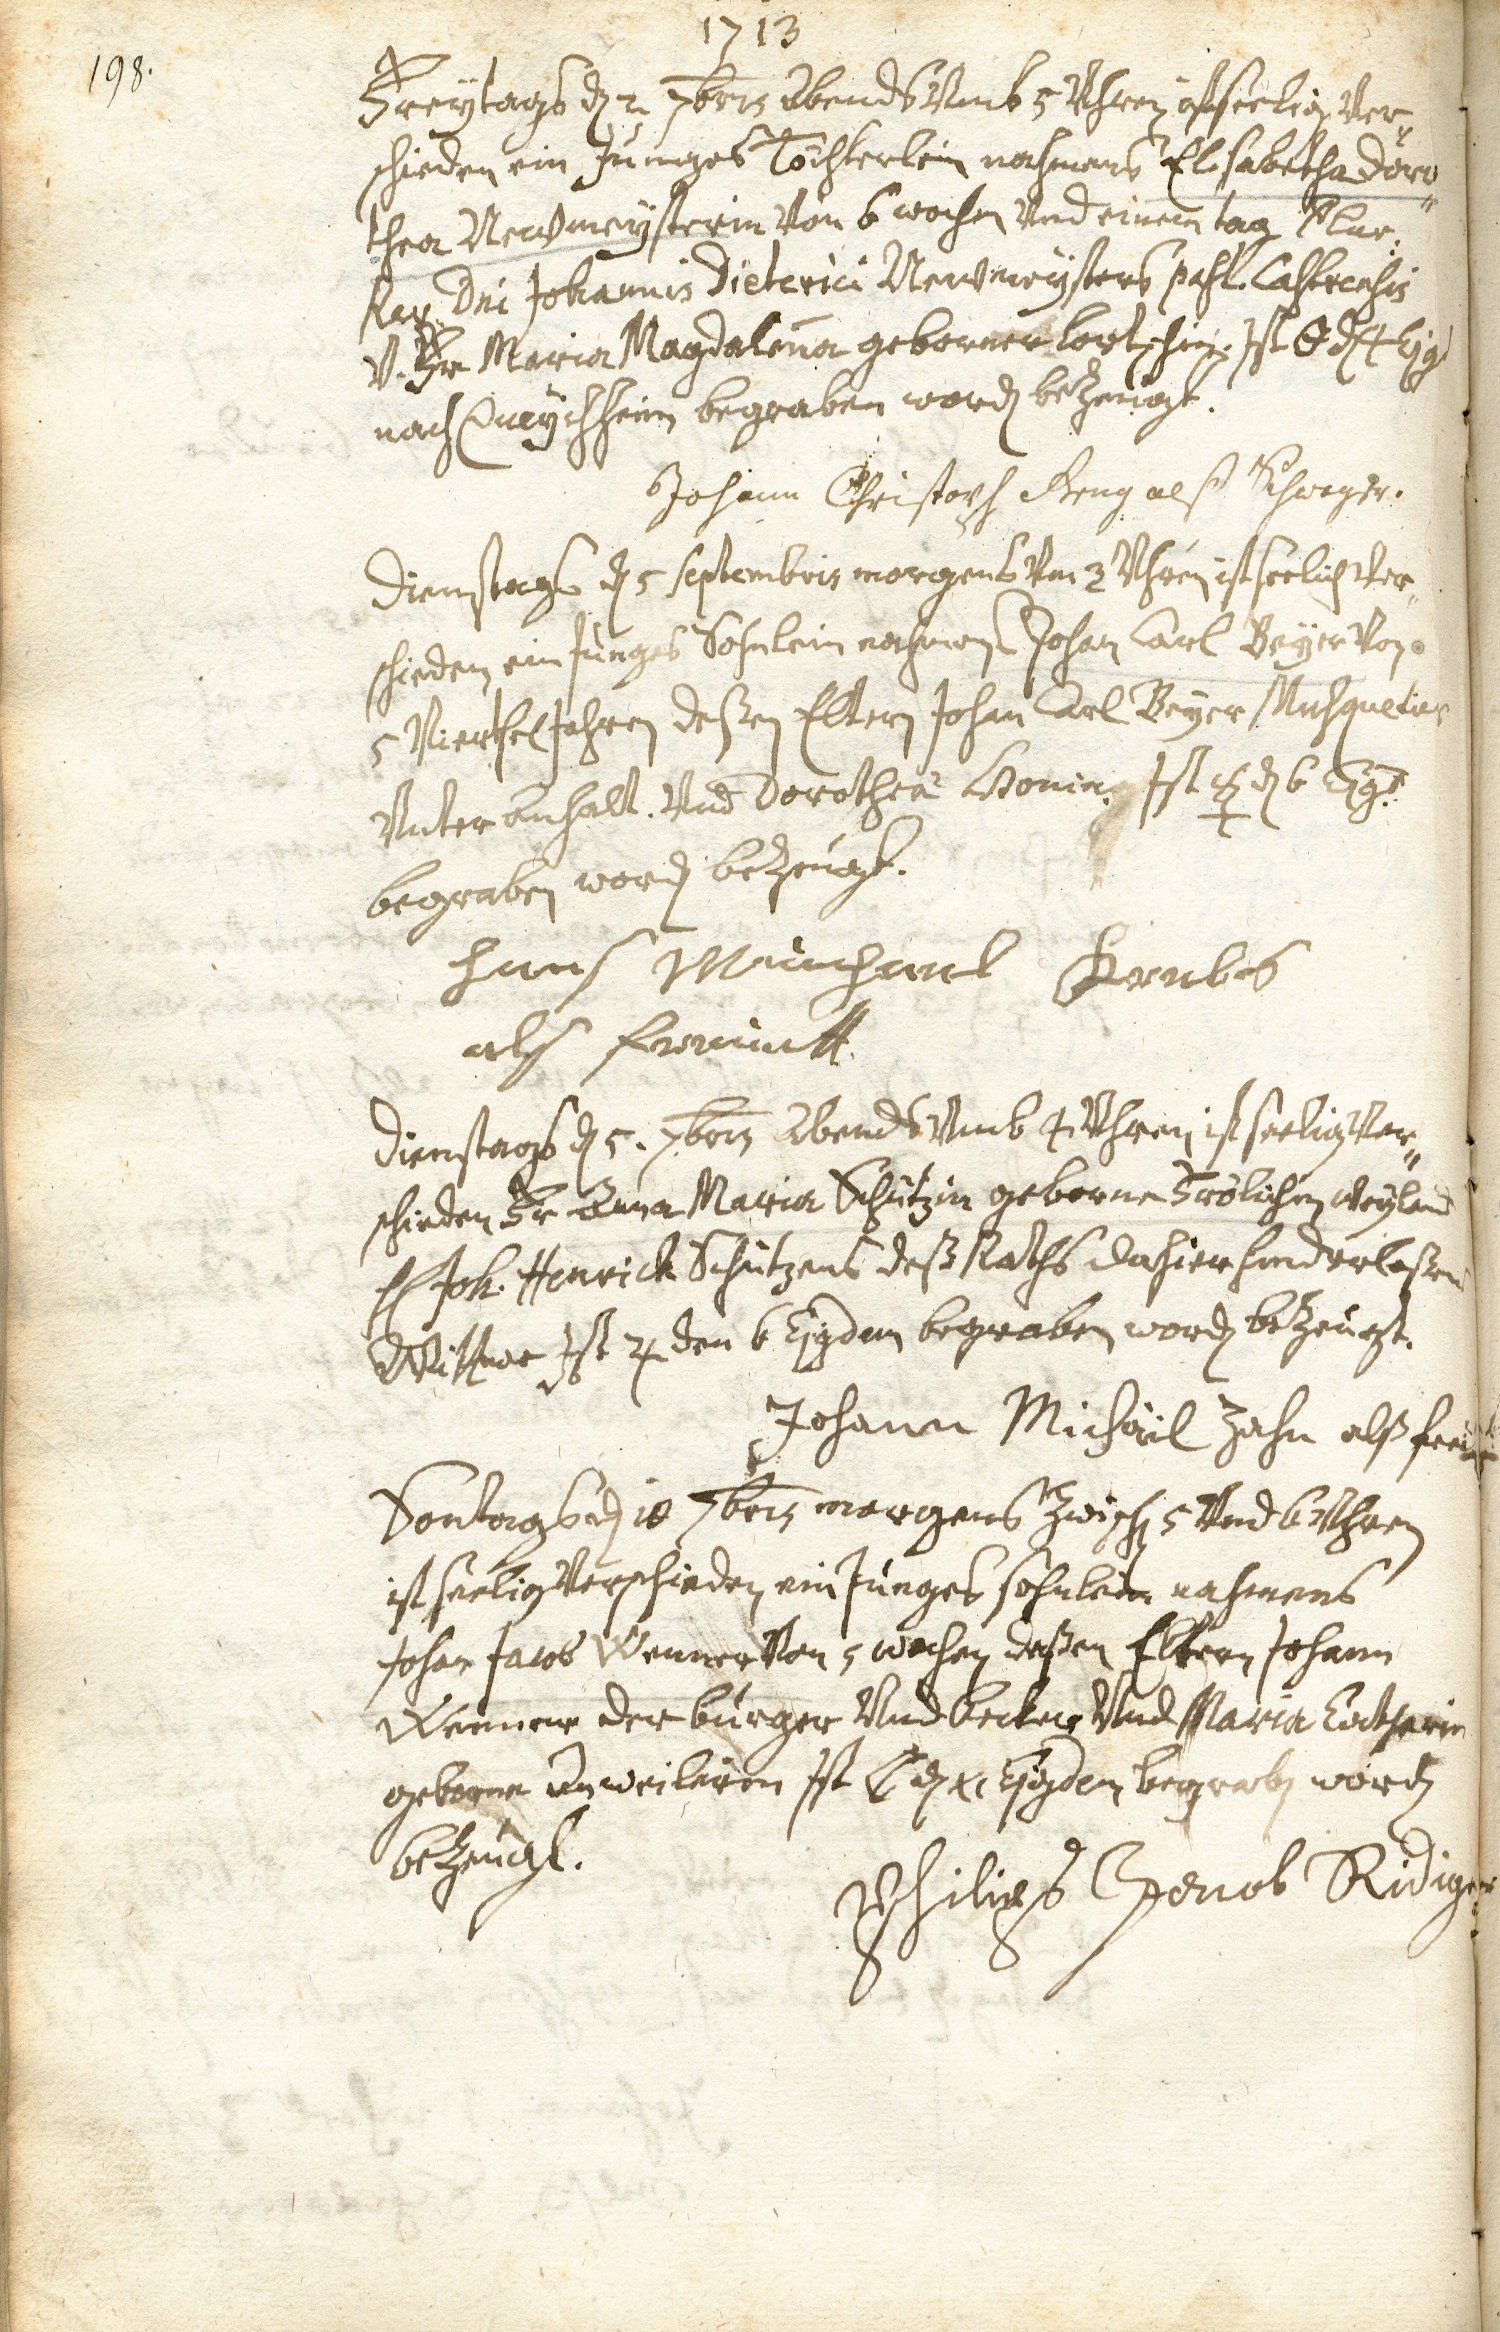 1713
198.
Freytags d 2 7bris Abends Vmb 5 Vhren ist seelig Ver„
schieden ein Junges Töchterlein nahmens Elisabetha Doro„
thea Newmeysterin Von 6 wochen Vnd einem tag Plur.
Rev. Dni Johannis Dieterici Newmeysters past. Castrensis
V. Fr Maria Magdalena geborner Ist ☉ d 4
nach begraben word bezeügt.
Johann Christoph als Schwager.
Dienstags d 5 Septembris morgens Vm 3 Vhren ist seelich Ver„
schieden ein Junges Sohnlein nahmens Johan Carl Beyer Von
5 Viertel Jahren deßen Eltern Johan Carl Beyer Musquetier
Vnter Anhalt. Vnd Dorothea Ist ☿ d 6
begraben word bezeügt.
Hans
als freuindt
Dienstags d 5. 7bris Abends Vmb 4 Vhren ist seelig Ver„
schieden Fr Anna Maria Schützin geborne Frölichen weyland
H Joh. Henrich Schützens deß Raths dahier hinderlaßen
Wittwe Ist ♃ den 6 begraben word bezeügt.
Johann Michäel Zahn alß
Sontags d 10 7bris morgens Zwisch 5 Vnd 6 Vhren
ist seelig Verschieden ein Junges sohnlein nahmens
Johan Jacob Wenner Von 5 wochen deßen Eltern Johann
Wenner der burger Vnd becker Vnd Maria Catharin
geborne Anweilerin Ist ☾ d XI begrab word
bezeügt.
Philips Jacob Ridiger